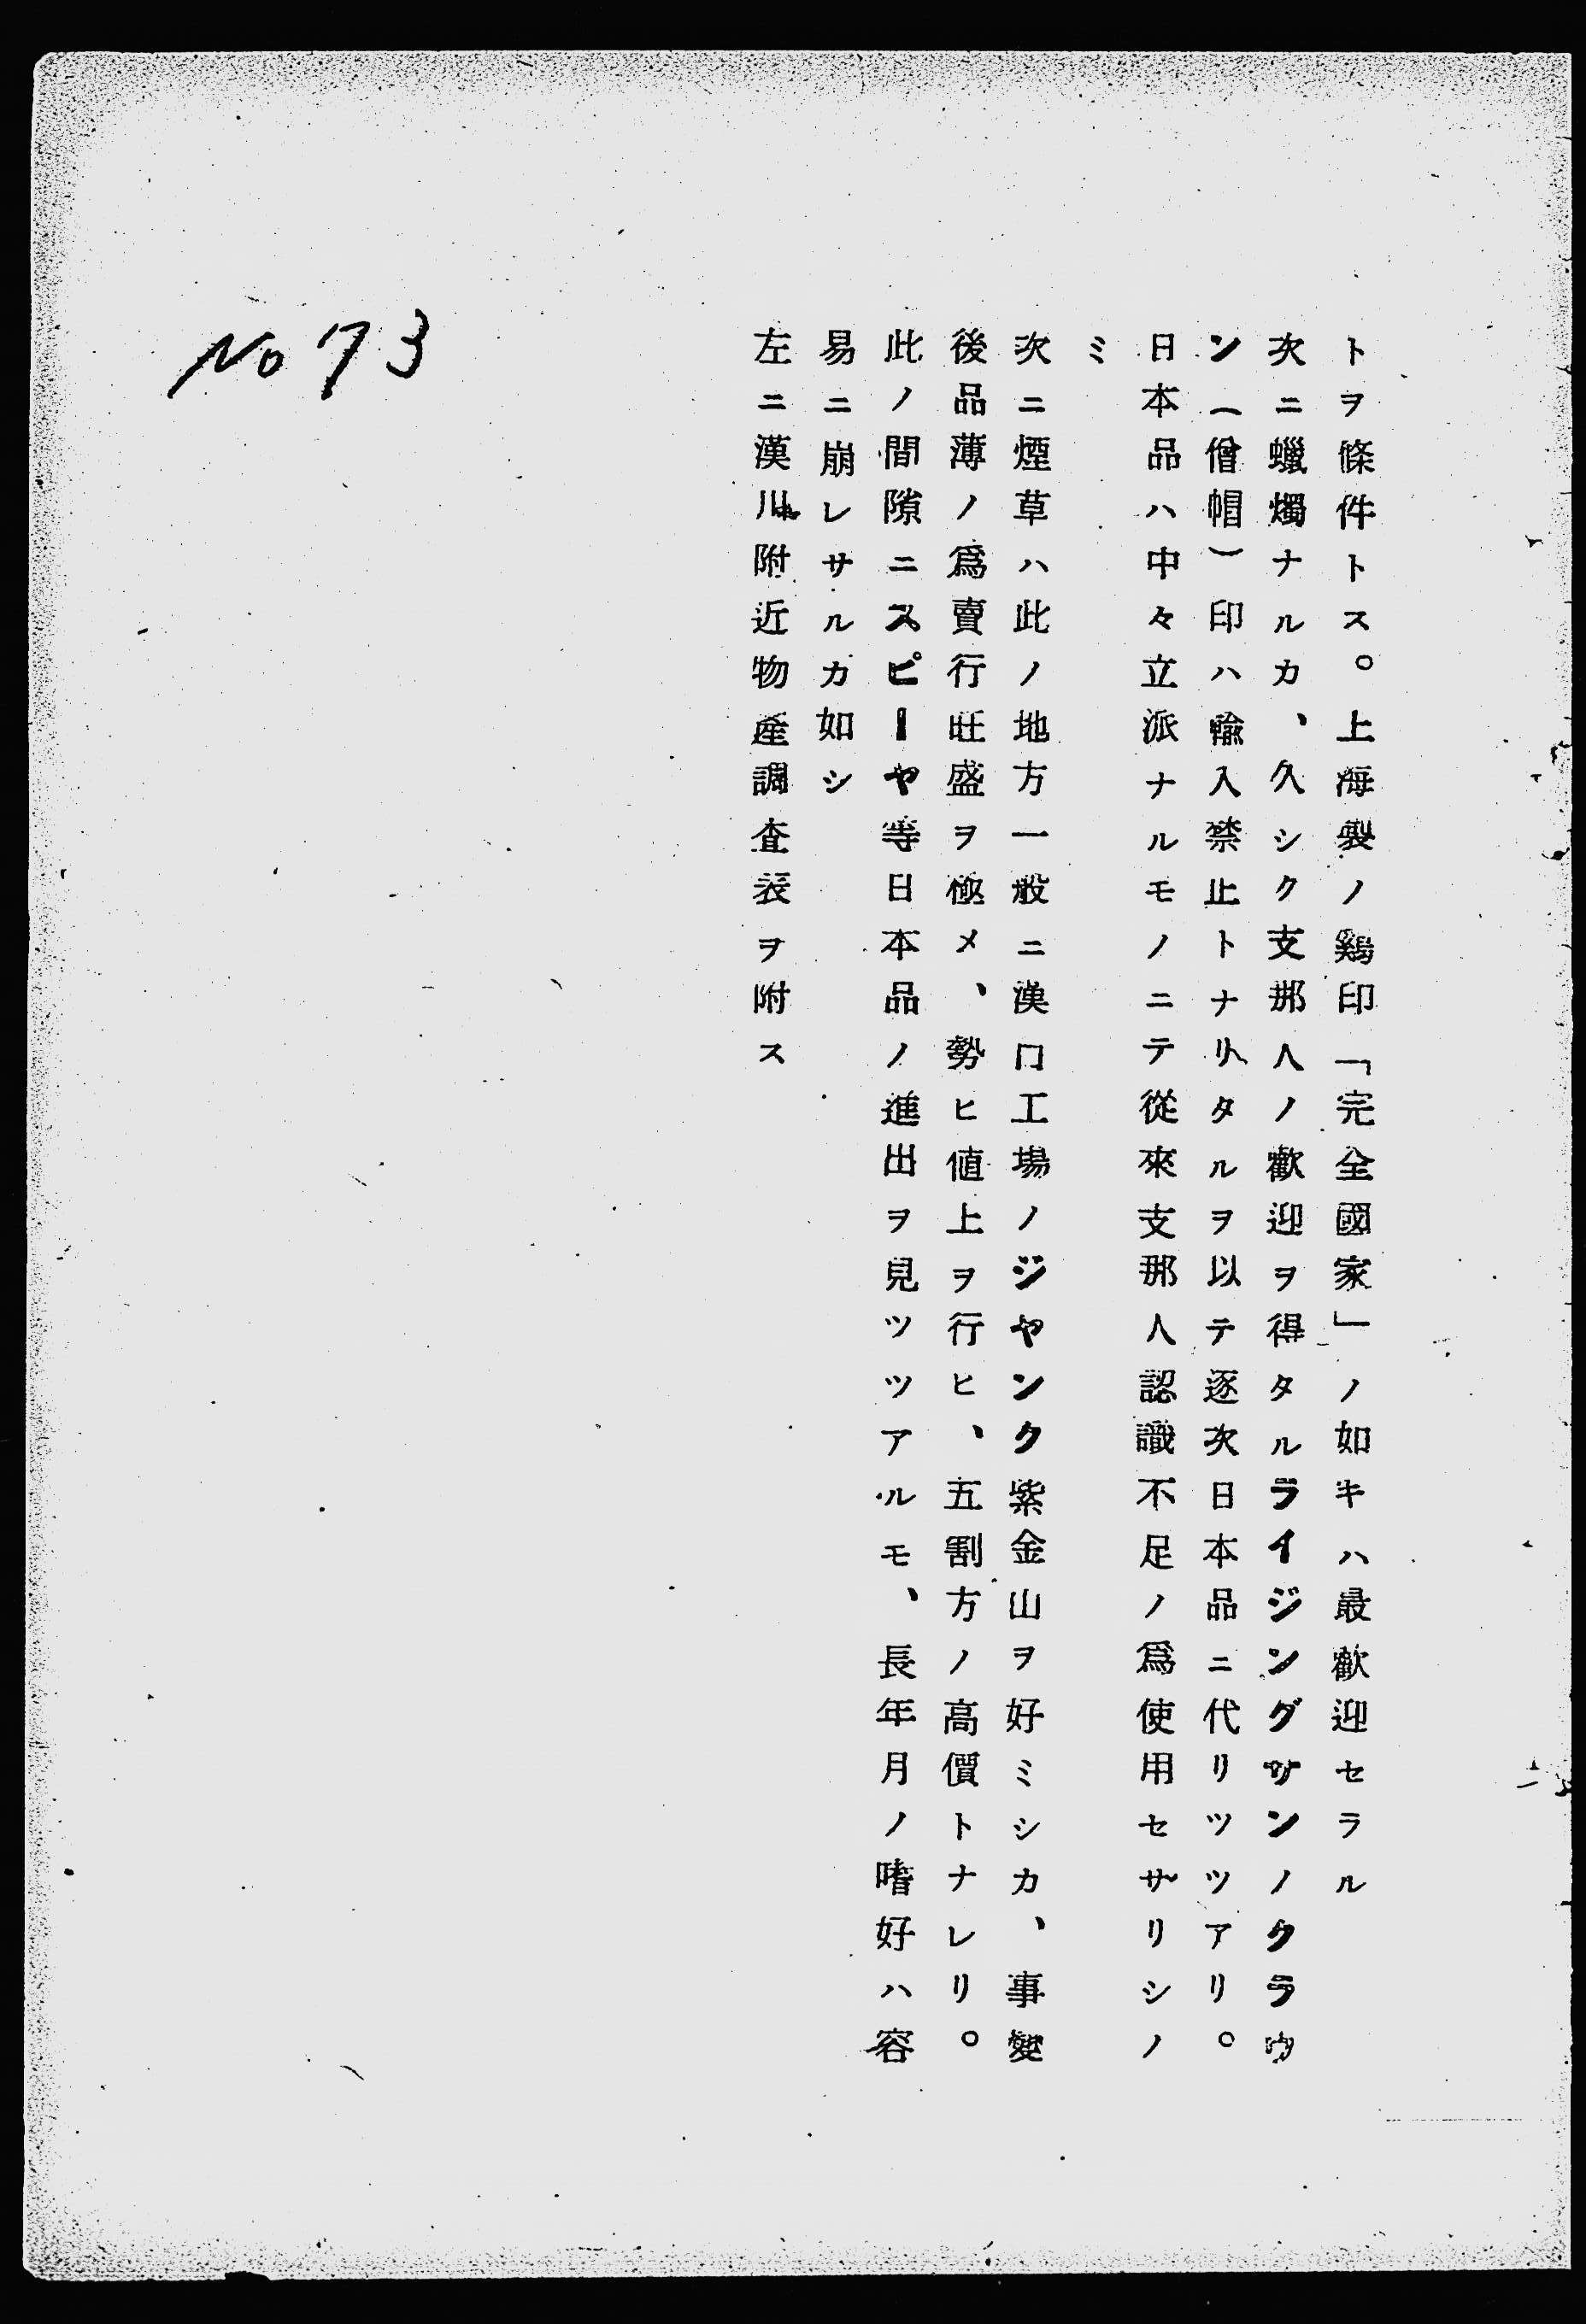 トヲ條件トス。上海製ノ鷄印「完全國家」ノ如キハ最歡迎セラル
次ニ蠟燭ナルカ、久シク支那人ノ歡迎ヲ得タルライジングサンノクラウ
ン（僧帽）印ハ輸入禁止トナリタルヲ以テ逐次日本品ニ代リツツアリ。
日本品ハ中々立派ナルモノニテ從來支那人認識不足ノ爲使用セサリシノ
ミ
次ニ煙草ハ此ノ地方一般ニ漢口工場ノジヤンク紫金山ヲ好ミシカ、事變
後品薄ノ爲賣行旺盛ヲ極メ、勢ヒ値上ヲ行ヒ、五割方ノ高價トナレリ。
此ノ間隙ニスピーヤ等日本品ノ進出ヲ見ツツアルモ、長年月ノ嗜好ハ容
易ニ崩レサルカ如シ
左ニ漢川附近物產調査表ヲ附ス
No 73